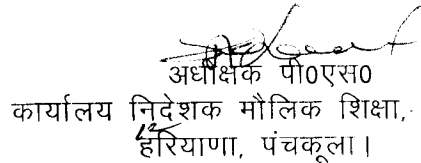 अधीक्षक पी0एस0
कार्यालय निदेशक मौलिक शिक्षा,
हरियाणा, पंचकूला।